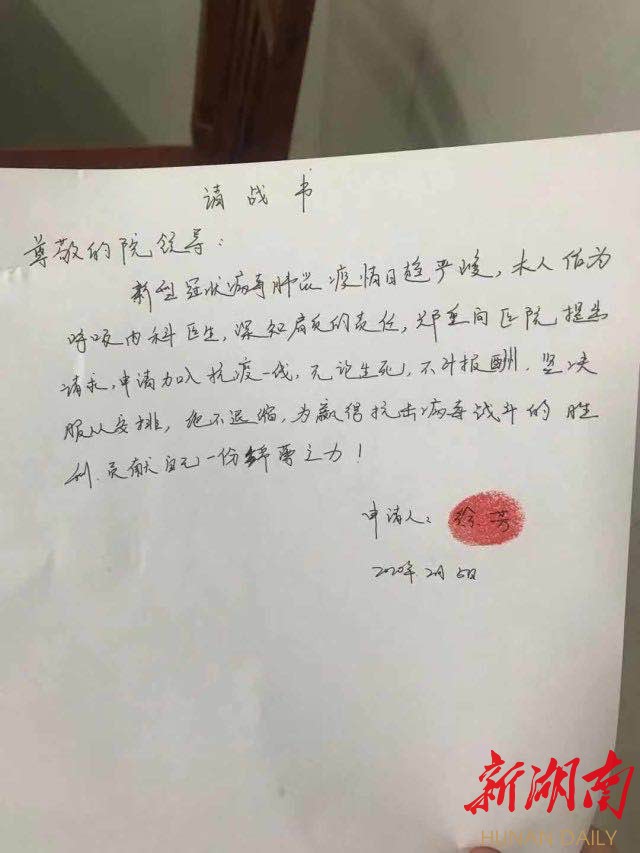 请战书
尊敬的院领导：
新型冠状病毒肺炎疫情日趋严峻，本人作为
呼吸内科医生，深知肩负的责任，郑重向医院提出
请求，申请加入抗疫一线，无论生死，不计报酬．坚决
服从安排，绝不退缩，为赢得抗击病毒战斗的胜
利．贡献自己一份绵薄之力！
申请人：徐芳
2020年2月5日
新湖南
HUNAN DAILY